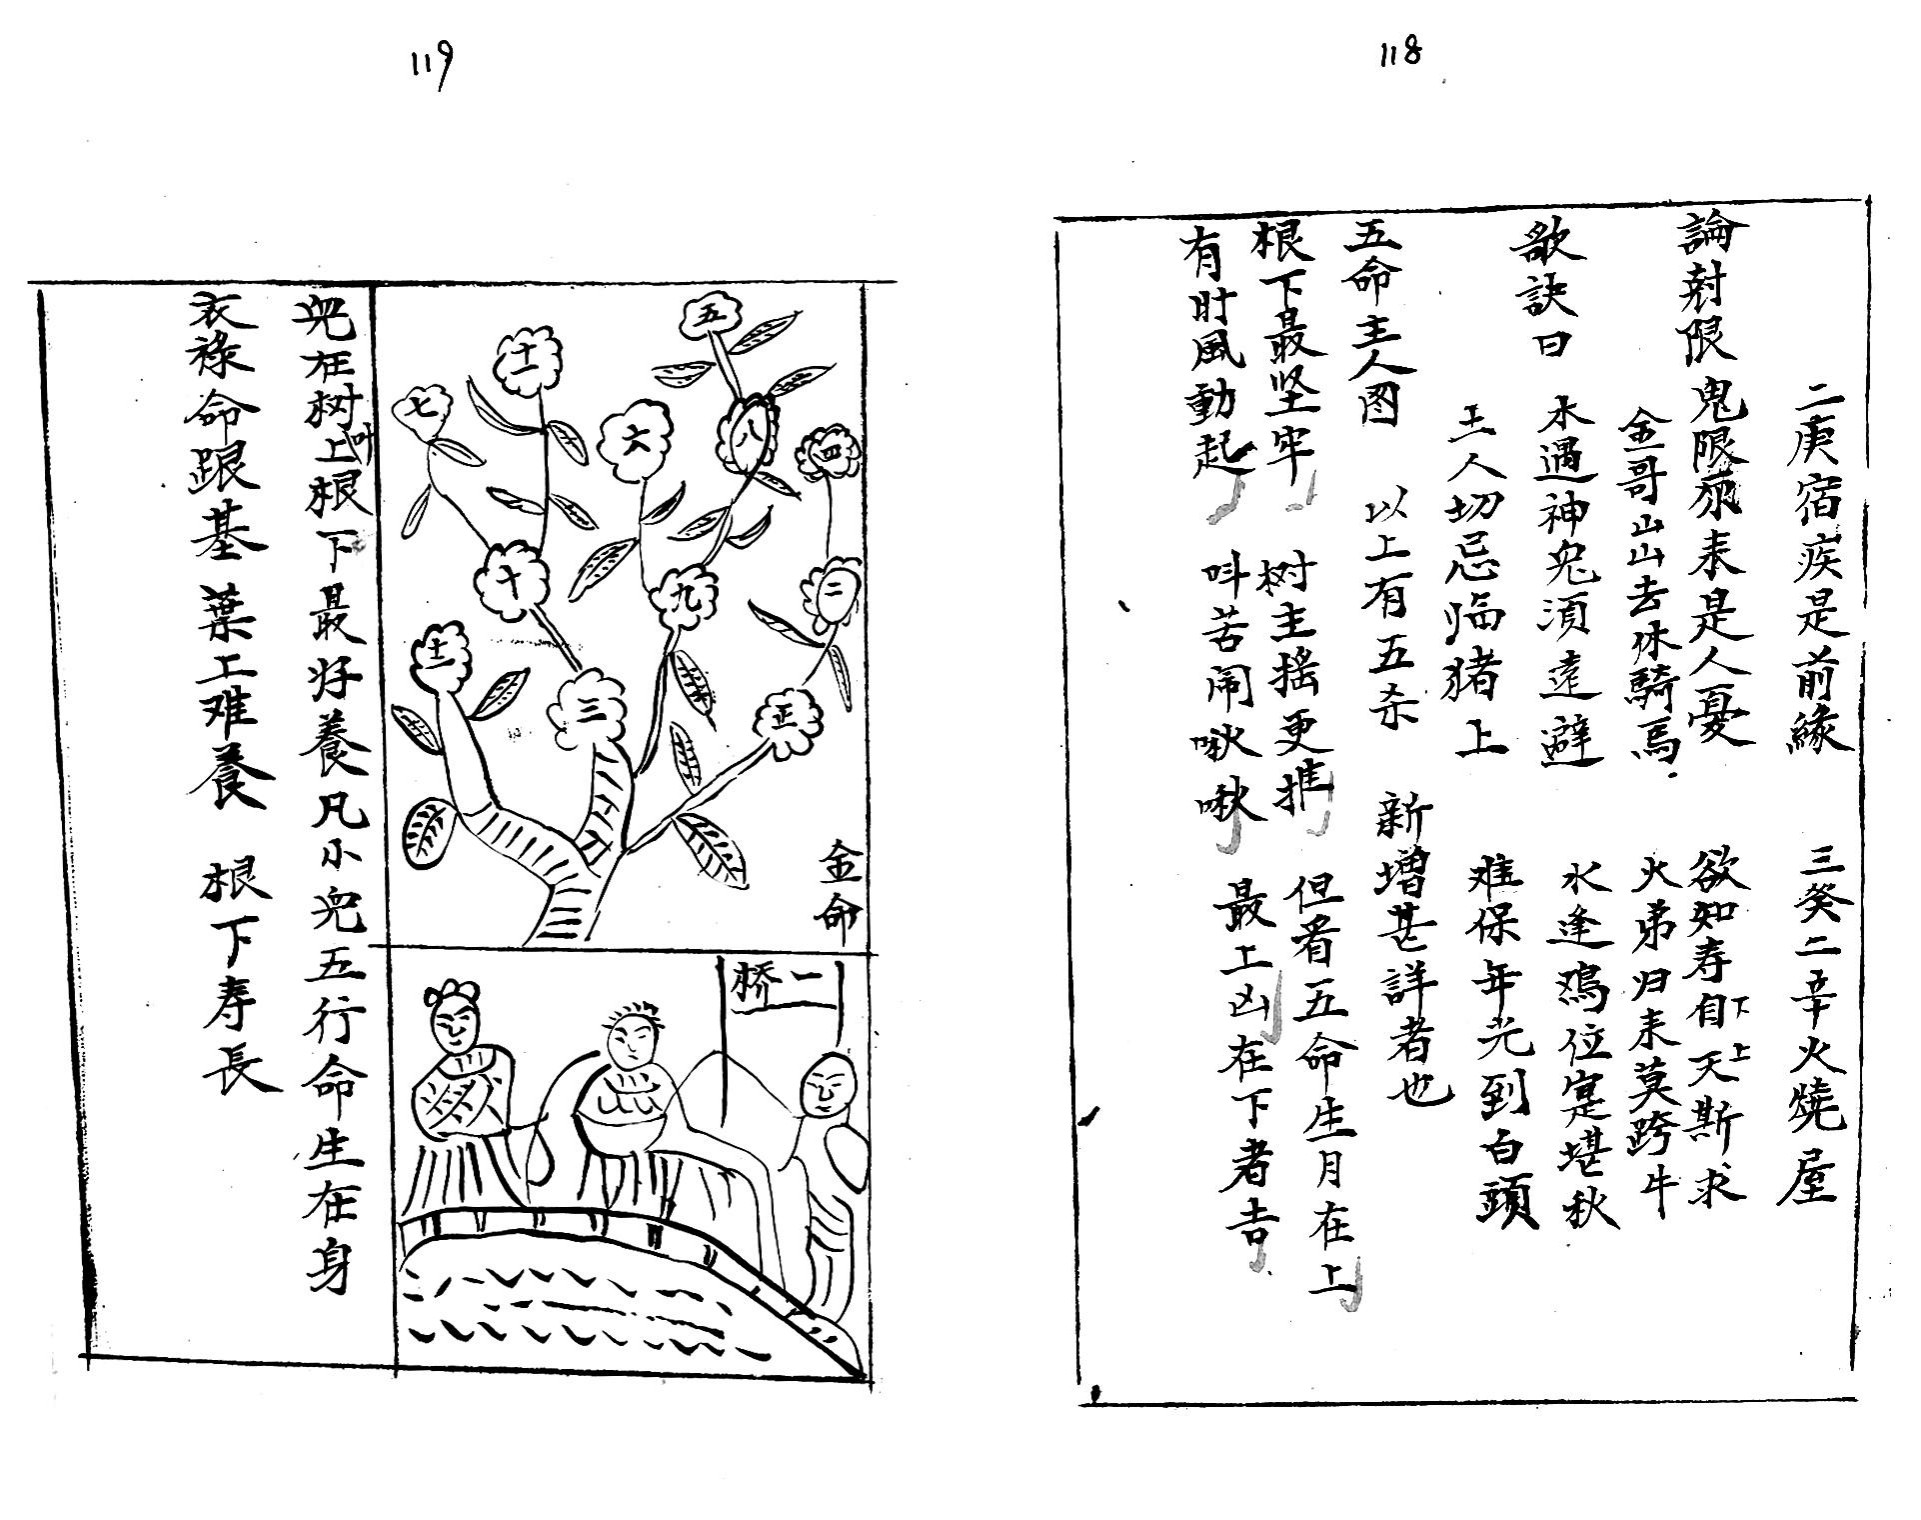 118
二庚宿疾是前緣 三癸二辛火燒屋
論尅限 鬼限原来是人憂 欲知寿自下天上斯求
金哥山山去休騎馬 火弟归来莫跨牛
歌訣曰 木遇神鬼須遠避 水逢鸡位寔堪秋
土人切忌临猪上 难保年光到白頭
五命主人图 以上有五杀 新增甚詳者也
根下最坚牢 树主摇更摧 但看五命生月在上
有时風動起 叫苦闹啾啾 最上凶在下者吉
119
五
十一
七
六
八
四
十
九
二
十二
三
正
金命
一桥
児在树上叶根下最好養凡小児五行命生在身
衣祿命跟基 葉上难養 根下寿長